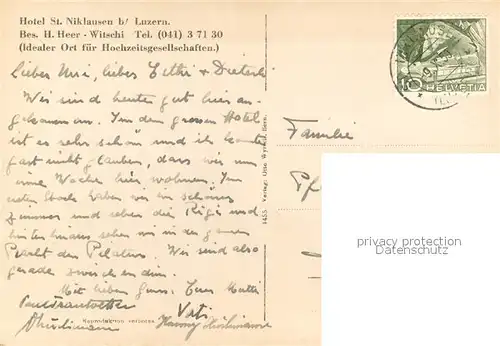 Hotel St. Niklausen b/ Luzern.
Bes. H. Heer - Witschi Tel. (041) 3 71 30
(Idealer Ort für Hochzeitsgesellschaften.)
Lieber Urs, lieber & Dieterli
Wir sind heute gut hier an-
gekommen. In dem grossen Hotel
ist es sehr schön und ich konnte
fast nicht glauben, dass wir nun
eine Woche hier wohnen. Im
ersten Stock haben wir ein schönes
Zimmer und sehen die Rigi und
hinten hinaus sehen wir in der ganzen
Pracht den Pilatus. Wir sind also
gerade zwischendrin.
Mit lieben Euer
Familie
Pf
10 HELVETIA
1455 Verlag: Otto Bern.
Reproduktion verboten
privacy protection
Datenschutz